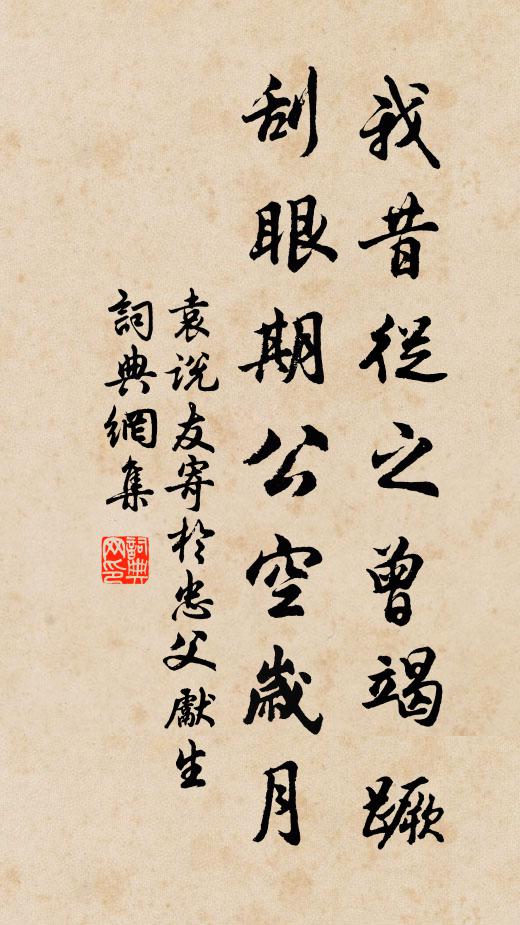 我昔從之曾竭蹶
刮眼期公空歲月
袁說友寄於忠父獻生
詞典網集
詞典网印